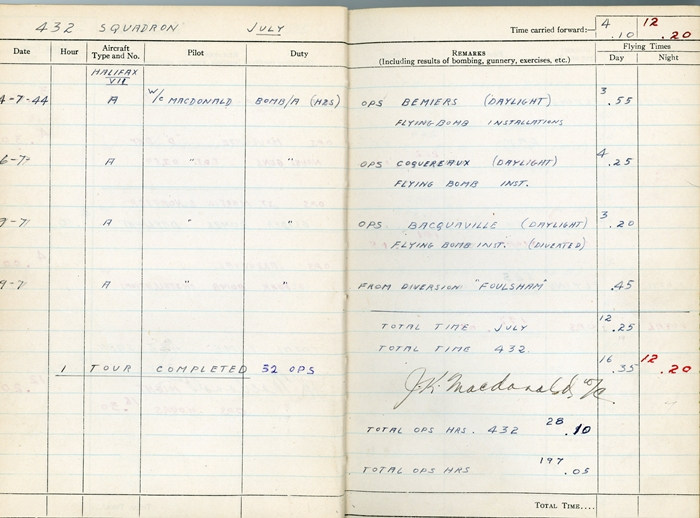 432 SQUADRON JULY
Time carried forward:— 4 .10 12 .20
Date Hour Aircraft Type and No. Pilot Duty REMARKS (Including results of bombing, gunnery, exercises, etc.) Flying Times Day Night
HALIFAX
VII
4-7-44 A W/C MACDONALD BOMB/A (HBS) OPS BEMIERS (DAYLIGHT) 3 .55
FLYING BOMB INSTALLATIONS
6-7- A " " OPS COQUEREAUX (DAYLIGHT) 4 .25
FLYING BOMB INST.
9-7 A " " OPS BACQUAVILLE (DAYLIGHT) 3 .20
FLYING BOMB INST. (DIVERTED)
9-7 A " " FROM DIVERSION "FOULSHAM" .45
TOTAL TIME JULY 12 .25
TOTAL TIME 432. 16 .35 12 .20
1 TOUR COMPLETED 32 OPS
J.K. Macdonald W/C.
TOTAL OPS HRS. 432 28 .10
TOTAL OPS HRS 197 .05
TOTAL TIME....